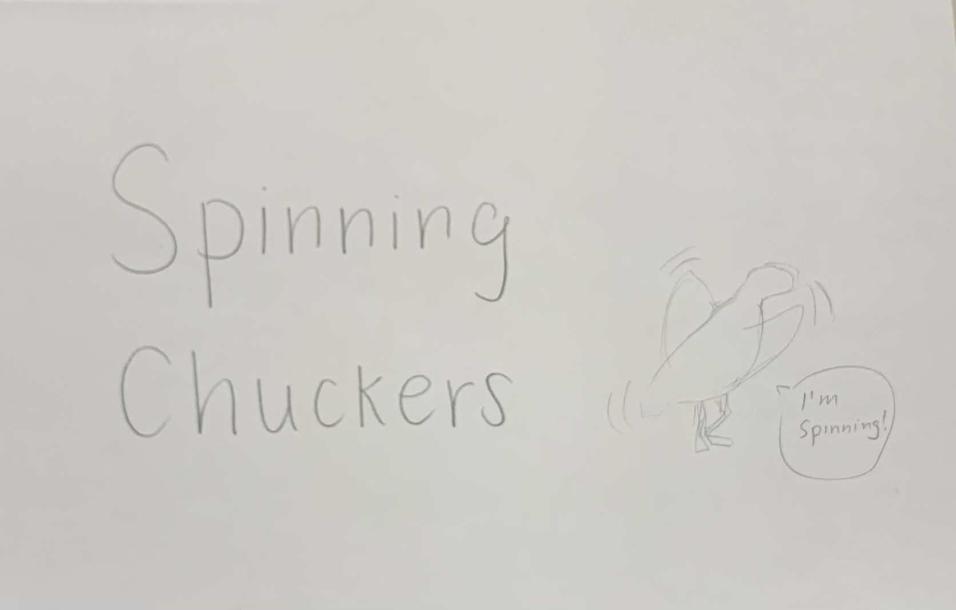 Spinning
Chuckers
I'm
Spinning!